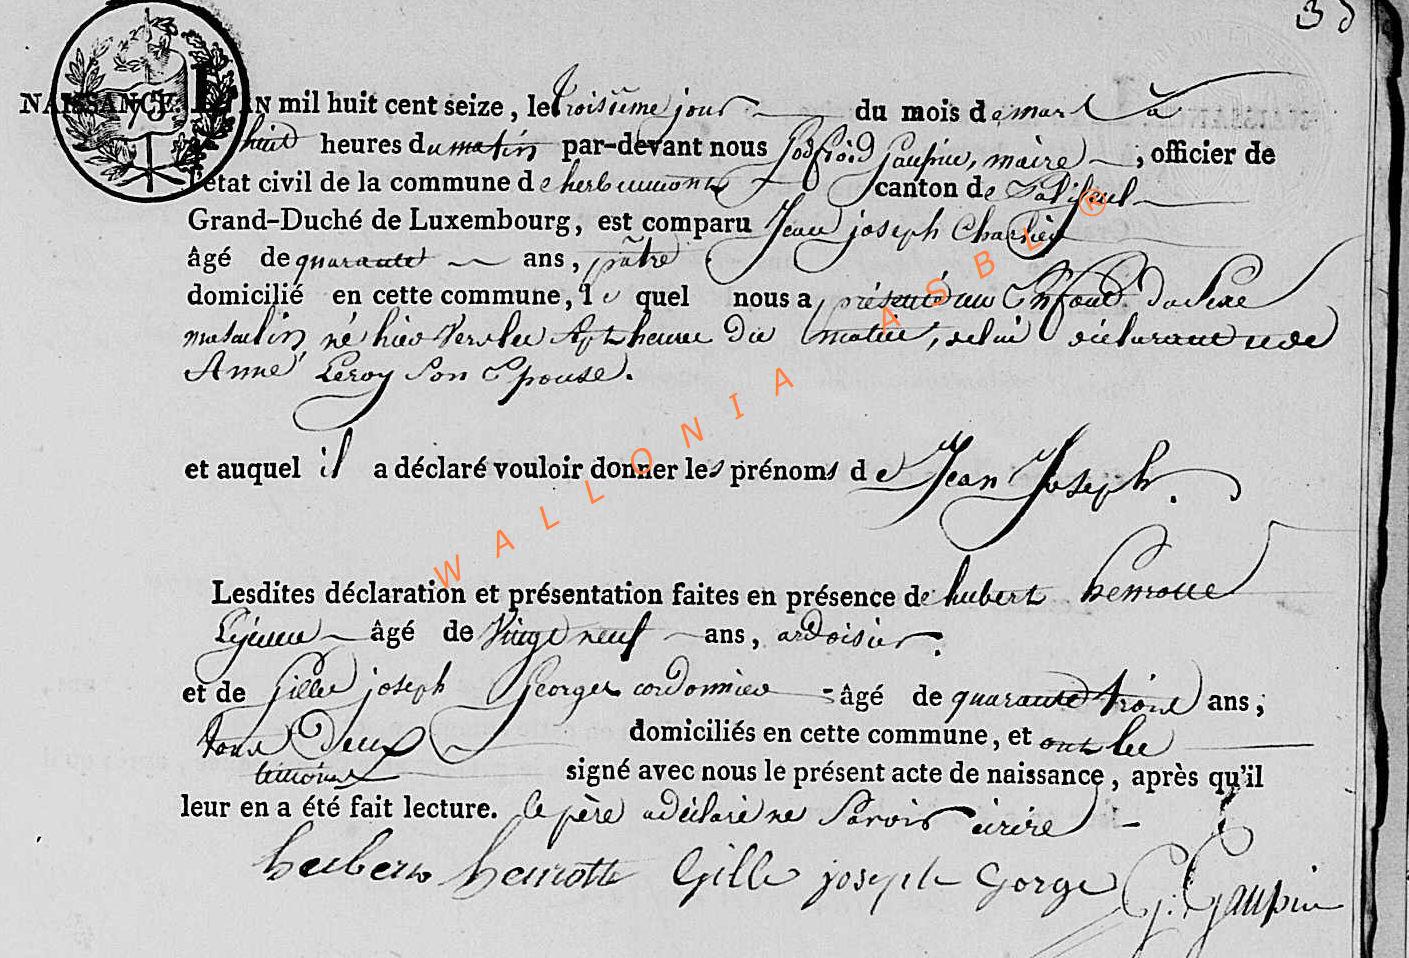 38
NAISSANCE. L'AN mil huit cent seize, le troisieme jour du mois de mars à
huit heures du matin par-devant nous Godfroid Gaupin, maire, officier de
l'état civil de la commune de herbeumont canton de Paliseul
Grand-Duché de Luxembourg, est comparu Jean joseph Charlier
âgé de quarante ans, pâtre
domicilié en cette commune, le quel nous a présenté un Enfant du Sexe
masculin né hier vers les sept heures du matin, de lui déclarant et de
Anne Leroy Son Epouse.
et auquel il a déclaré vouloir donner les prénoms de Jean Joseph.
Lesdites déclaration et présentation faites en présence de hubert henrotte
Lejeune âgé de vingt neuf ans, ardoisier.
et de Gille joseph Georges cordonnier âgé de quarante trois ans;
tous Deux domiciliés en cette commune, et ont les
temoins signé avec nous le présent acte de naissance, après qu'il
leur en a été fait lecture. le père a déclaré ne Savoir écrire
hubert henrotte Gille joseph Gorge G: Gaupin
WALLONIA ASBL ®